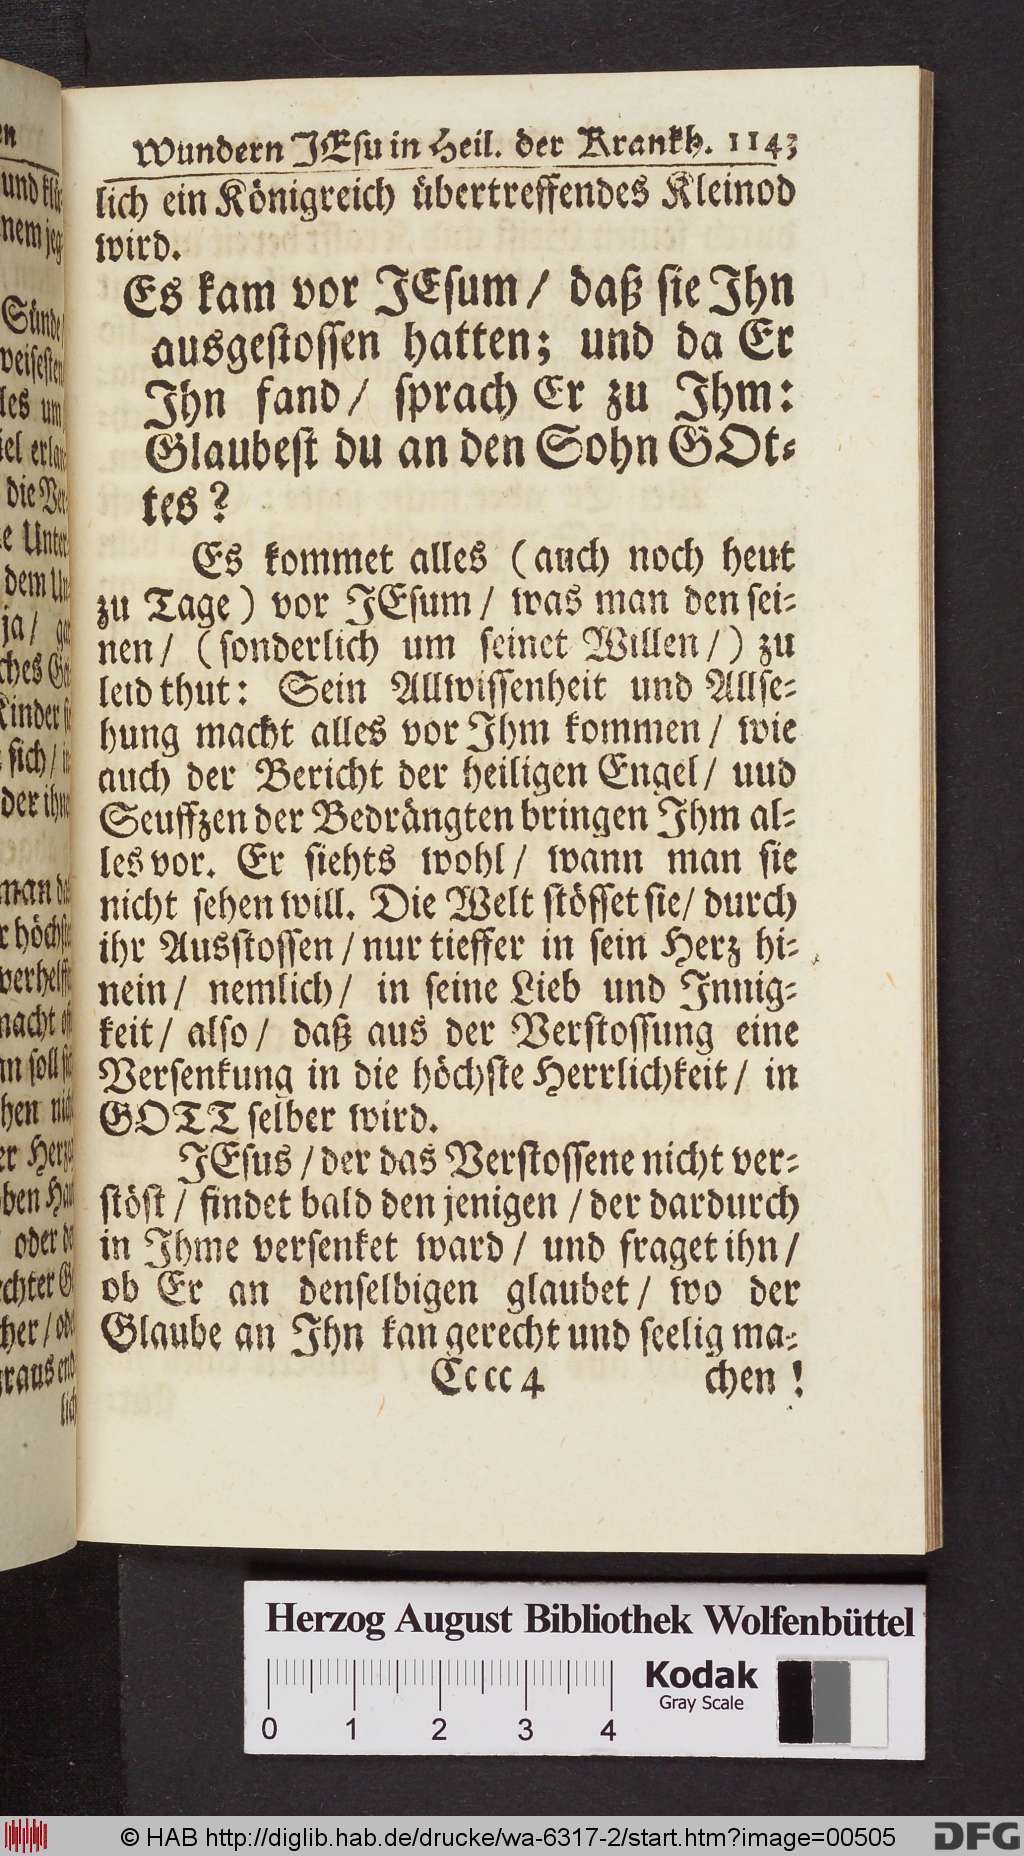 Wundern JEsu in Heil. der Krankh. 1143
lich ein Königreich übertreffendes Kleinod
wird.
Es kam vor JEsum / daß sie Ihn
ausgestossen hatten; und da Er
Ihn fand / sprach Er zu Ihm:
Glaubest du an den Sohn GOt-
tes?
Es kommet alles (auch noch heut
zu Tage) vor JEsum / was man den sei-
nen / (sonderlich um seinet Willen /) zu
leid thut: Sein Allwissenheit und Allse-
hung macht alles vor Ihm kommen / wie
auch der Bericht der heiligen Engel / uud
Seuffzen der Bedrängten bringen Ihm al-
les vor. Er siehts wohl / wann man sie
nicht sehen will. Die Welt stösset sie / durch
ihr Ausstossen / nur tieffer in sein Herz hi-
nein / nemlich / in seine Lieb und Innig-
keit / also / daß aus der Verstossung eine
Versenkung in die höchste Herrlichkeit / in
GOTT selber wird.
JEsus / der das Verstossene nicht ver-
stöst / findet bald den jenigen / der dardurch
in Ihme versenket ward / und fraget ihn /
ob Er an denselbigen glaubet / wo der
Glaube an Ihn kan gerecht und seelig ma-
Cccc 4 chen!
Herzog August Bibliothek Wolfenbüttel
Kodak
Gray Scale
0 1 2 3 4
© HAB http://diglib.hab.de/drucke/wa-6317-2/start.htm?image=00505
DFG